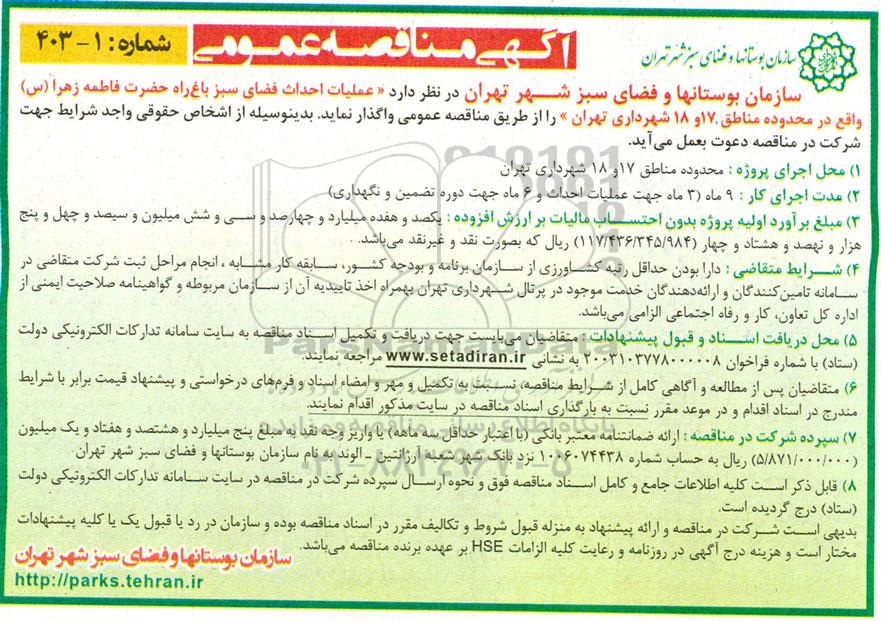 سازمان بوستانها و فضای سبز شهر تهران
آگهی مناقصه عمومی
شماره: ۱ - ۴۰۳
سازمان بوستانها و فضای سبز شهر تهران در نظر دارد « عملیات احداث فضای سبز باغ‌راه حضرت فاطمه زهرا (س)
واقع در محدوده مناطق ۱۷و ۱۸ شهرداری تهران » را از طریق مناقصه عمومی واگذار نماید. بدینوسیله از اشخاص حقوقی واجد شرایط جهت
شرکت در مناقصه دعوت بعمل می‌آید.
۱) محل اجرای پروژه : محدوده مناطق ۱۷و ۱۸ شهرداری تهران
۲) مدت اجرای کار : ۹ ماه (۳ ماه جهت عملیات احداث و ۶ ماه جهت دوره تضمین و نگهداری)
۳) مبلغ برآورد اولیه پروژه بدون احتساب مالیات بر ارزش افزوده : یکصد و هفده میلیارد و چهارصد و سی و شش میلیون و سیصد و چهل و پنج
هزار و نهصد و هشتاد و چهار (۱۱۷/۴۳۶/۳۴۵/۹۸۴) ریال که بصورت نقد و غیرنقد می‌باشد.
۴) شرایط متقاضی : دارا بودن حداقل رتبه کشاورزی از سازمان برنامه و بودجه کشور، سابقه کار مشابه ، انجام مراحل ثبت شرکت متقاضی در
سامانه تامین‌کنندگان و ارائه‌دهندگان خدمت موجود در پرتال شهرداری تهران بهمراه اخذ تاییدیه آن از سازمان مربوطه و گواهینامه صلاحیت ایمنی از
اداره کل تعاون، کار و رفاه اجتماعی الزامی می‌باشد.
۵) محل دریافت اسناد و قبول پیشنهادات : متقاضیان می‌بایست جهت دریافت و تکمیل اسناد مناقصه به سایت سامانه تدارکات الکترونیکی دولت
(ستاد) با شماره فراخوان ۲۰۰۳۱۰۳۷۷۸۰۰۰۰۰۸ به نشانی www.setadiran.ir مراجعه نمایند.
۶) متقاضیان پس از مطالعه و آگاهی کامل از شرایط مناقصه، نسبت به تکمیل و مهر و امضاء اسناد و فرم‌های درخواستی و پیشنهاد قیمت برابر با شرایط
مندرج در اسناد اقدام و در موعد مقرر نسبت به بارگذاری اسناد مناقصه در سایت مذکور اقدام نمایند.
۷) سپرده شرکت در مناقصه : ارائه ضمانتنامه معتبر بانکی (با اعتبار حداقل سه ماهه) یا واریز وجه نقد به مبلغ پنج میلیارد و هشتصد و هفتاد و یک میلیون
(۵/۸۷۱/۰۰۰/۰۰۰) ریال به حساب شماره ۱۰۰۶۰۷۴۴۳۸ نزد بانک شهر شعبه آرژانتین ـ الوند به نام سازمان بوستانها و فضای سبز شهر تهران
۸) قابل ذکر است کلیه اطلاعات جامع و کامل اسناد مناقصه فوق و نحوه ارسال سپرده شرکت در مناقصه در سایت سامانه تدارکات الکترونیکی دولت
(ستاد) درج گردیده است.
بدیهی است شرکت در مناقصه و ارائه پیشنهاد به منزله قبول شروط و تکالیف مقرر در اسناد مناقصه بوده و سازمان در رد یا قبول یک یا کلیه پیشنهادات
مختار است و هزینه درج آگهی در روزنامه و رعایت کلیه الزامات HSE بر عهده برنده مناقصه می‌باشد.
سازمان بوستانها و فضای سبز شهر تهران
http://parks.tehran.ir
ParsNamadData
پایگاه اطلاع رسانی مناقصه و مزایده
۰۲۱-۸۸۳۴۹۶۷۰-۵